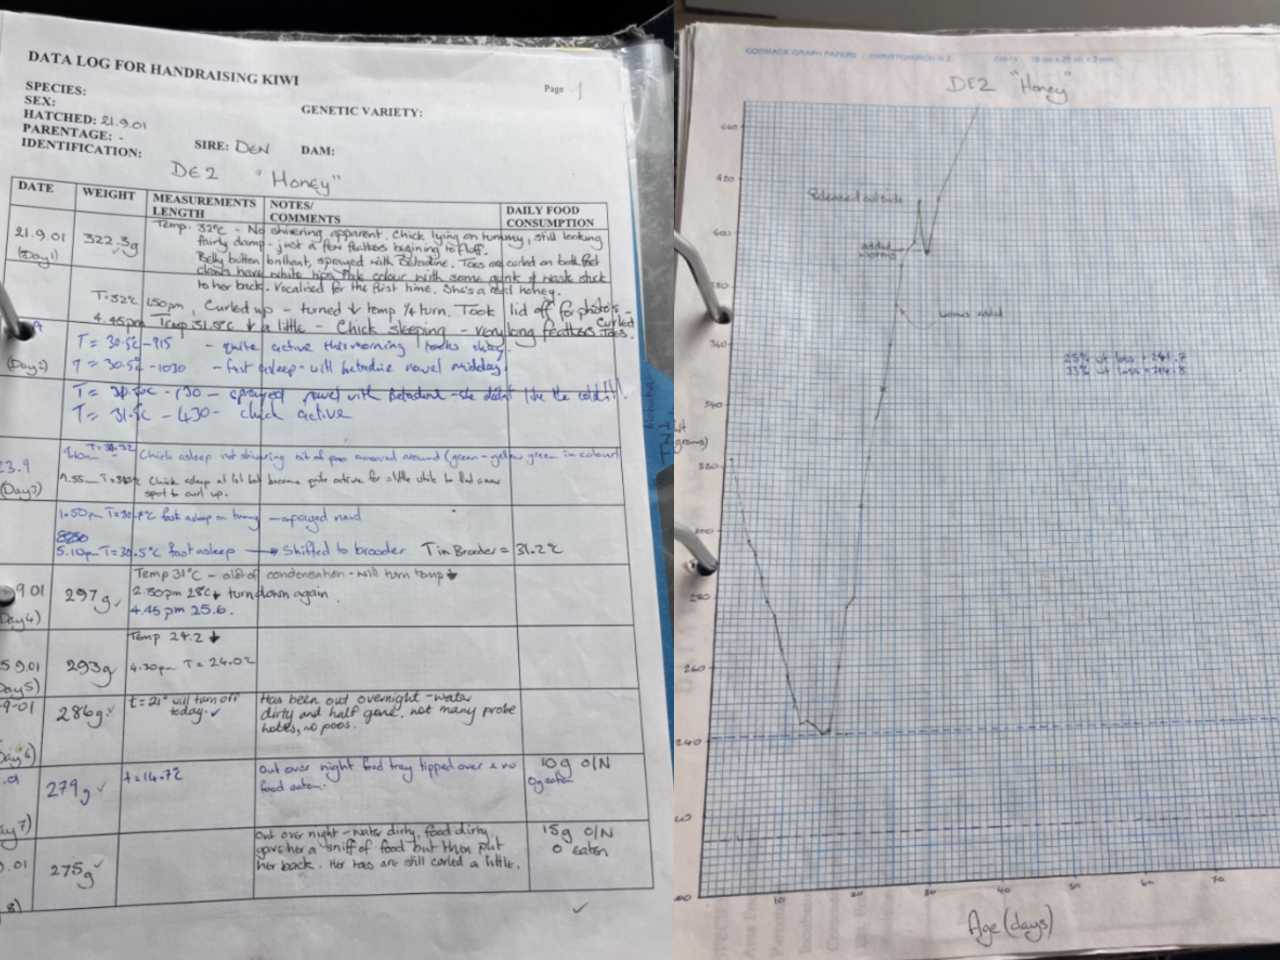 DATA LOG FOR HANDRAISING KIWI
Page 1
SPECIES:
SEX:
GENETIC VARIETY:
HATCHED: 21.9.01
PARENTAGE: -
SIRE: DEN DAM:
IDENTIFICATION:
DE2 "Honey"
DATE WEIGHT MEASUREMENTS LENGTH NOTES/ COMMENTS DAILY FOOD CONSUMPTION
21.9.01 (Day1) 322.3g
Temp. 32°C - No shivering apparent. Chick lying on tummy, still looking
fairly damp - just a few feathers begining to fluff.
Belly button brilliant, sprayed with Betadine. Toes are curled on both feet
claws have white tips. Pale colour with some gunk & waste stuck
to her back. Vocalised for the first time. She's a real honey.
T=32°C 1.50pm, Curled up - turned ↓ temp ¼ turn. Took lid off for photo's -
4.45pm Temp 31.5°C ↓ a little - Chick sleeping - very long feathers. Curled Toes.
(Day2)
T = 30.5°C - 915 - quite active this morning
T = 30.5° - 1030 - fast asleep - will betadine navel midday.
- 130 - sprayed navel with Betadine - she didn't like the cold!!!
T = 31.5°C - 430 - chick active
23.9 (Day3)
Chick asleep not shivering bit of poo around (green - yellow green in colour)
Chick asleep at 1st but became quite active for a little while to find a new
spot to curl up.
1.50pm fast asleep on tummy - sprayed navel
5.10pm T=30.5°C fast asleep → Shifted to brooder T in Brooder = 31.2°C
9.01 Day4) 297g
Temp 31°C - a lot of condensation - will turn temp ↓
2.30pm 28°C ↓ turn down again
4.45pm 25.6.
5 9.01 Day5) 293g
Temp 24.2 ↓
4.30pm T = 24.0°C
-9-01 Day6) 286g
t = 21° will turn off today.
Has been out overnight - water
dirty and half gone. not many probe
holes, no poos.
.01 ay7) 279g
t = 14.7°C
Out over night food tray tipped over & no
food eaten.
10g O/N
0g eaten
9.01 8) 275g
Out over night - water dirty, food dirty
gave her a sniff of food but then put
her back. Her toes are still curled a little.
15g O/N
0 eaten
DE2 "Honey"
Released outside
added worms
worms added
25% wt loss = 241.7
Age (days)
10 20 30 40 50 60 70
600
340
280
260
240